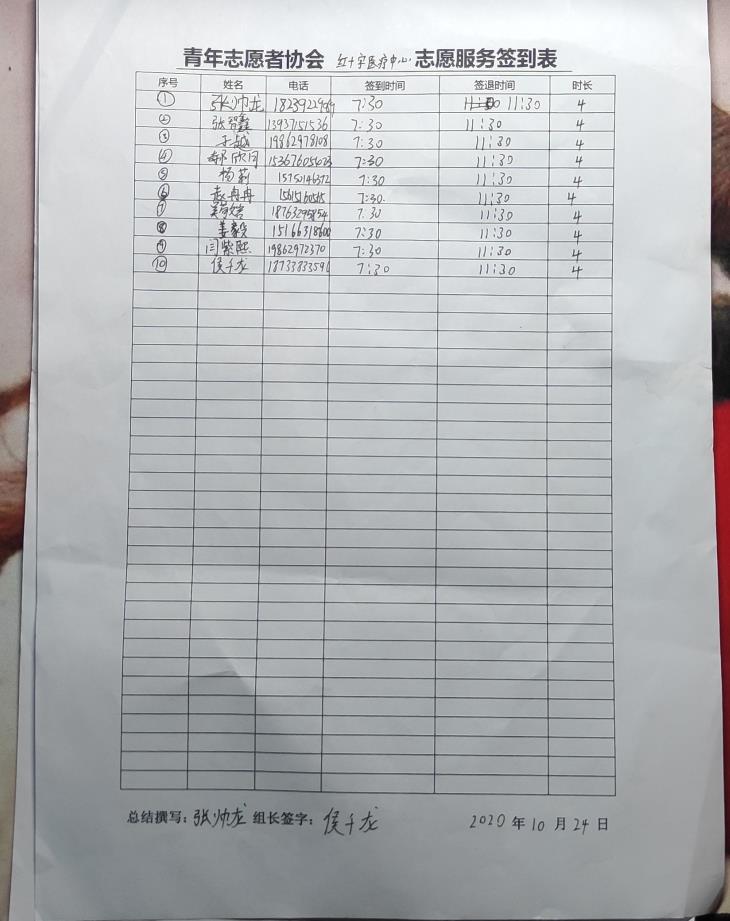 青年志愿者协会 红十字医疗中心 志愿服务签到表
序号 姓名 电话 签到时间 签退时间 时长
① 张帅龙 7:30 11:30 4
② 张智鑫 13937151536 7:30 11:30 4
③ 于越 19862978108 7:30 11:30 4
④ 7:30 11:30 4
⑤ 杨莉 15750146372 7:30 11:30 4
⑥ 赵冉冉 7:30 11:30 4
⑦ 18763295854 7:30 11:30 4
⑧ 姜毅 15166318600 7:30 11:30 4
⑨ 闫紫熙 19862972370 7:30 11:30 4
⑩ 侯千龙 18733833596 7:30 11:30 4
总结撰写：张帅龙 组长签字：侯千龙 2020 年 10 月 24 日